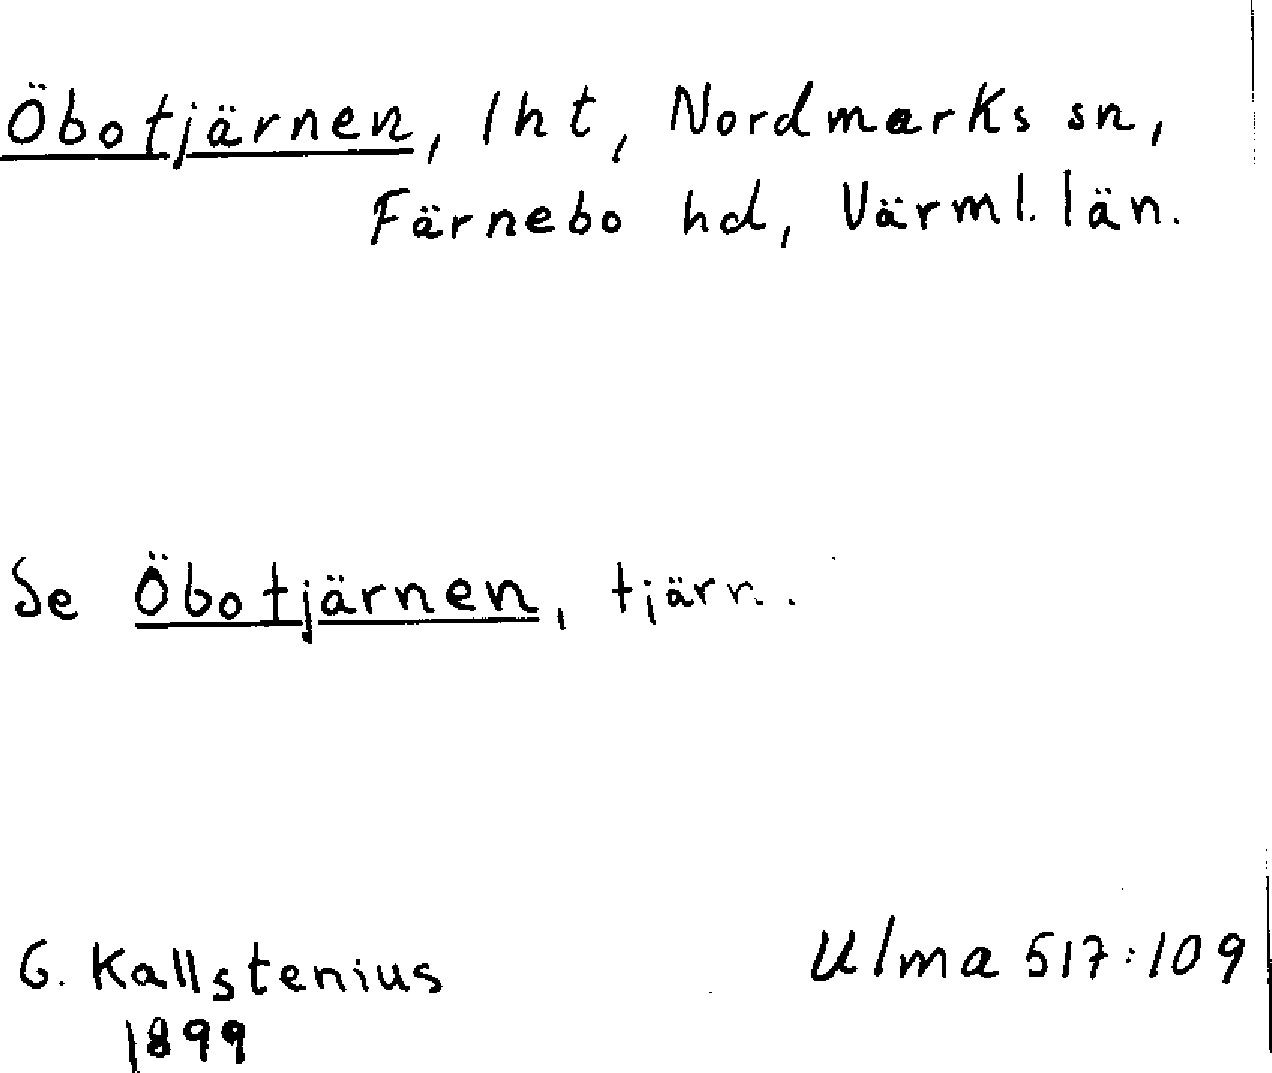 Öbotjärnen, lht, Nordmarks sn,
Färnebo hd, Värml. län.
Se Öbotjärnen, tjärn.
G. Kallstenius
1899
Ulma 517:109